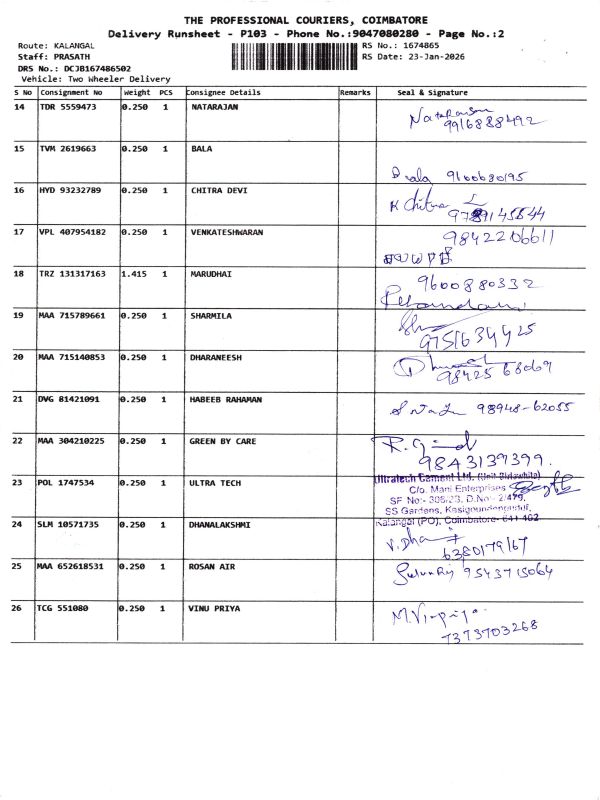 THE PROFESSIONAL COURIERS, COIMBATORE
Delivery Runsheet - P103 - Phone No.:9047080280 - Page No.:2
Route: KALANGAL RS No.: 1674865
Staff: PRASATH RS Date: 23-Jan-2026
DRS No.: DCJB167486502
Vehicle: Two Wheeler Delivery
S No Consignment No Weight PCS Consignee Details Remarks Seal & Signature
14 TDR 5559473 0.250 1 NATARAJAN Natarajan
9916888492
15 TVM 2619663 0.250 1 BALA
Bala 9100680195
16 HYD 93232789 0.250 1 CHITRA DEVI K Chitra
17 VPL 407954182 0.250 1 VENKATESHWARAN 9842206611
18 TRZ 131317163 1.415 1 MARUDHAI 9600880332
19 MAA 715789661 0.250 1 SHARMILA
9751634425
20 MAA 715140853 0.250 1 DHARANEESH
98425 68069
21 DVG 81421091 0.250 1 HABEEB RAHAMAN 98948-62055
22 MAA 304210225 0.250 1 GREEN BY CARE
9843139399.
23 POL 1747534 0.250 1 ULTRA TECH Ultratech Cement Ltd.
C/o. Mani Enterprises
SF No:- 305/23, D.No:- 2/479,
SS Gardens, Kasigoundenpudur,
Kalangal (PO), Coimbatore- 641 402
24 SLM 10571735 0.250 1 DHANALAKSHMI
6380179167
25 MAA 652618531 0.250 1 ROSAN AIR 9543715064
26 TCG 551080 0.250 1 VINU PRIYA
7373703268